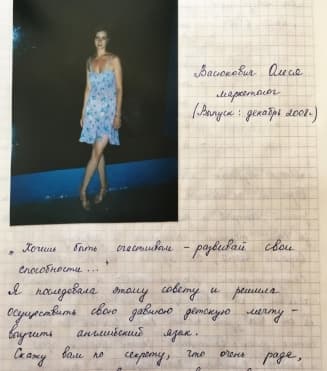 Васюкович Олеся
маркетолог
(Выпуск: декабрь 2008г.)
„Хочешь быть счастливым – развивай свои
способности..."
Я последовала этому совету и решила
осуществить свою давнюю детскую мечту –
выучить английский язык.
Скажу вам по секрету, что очень рада,